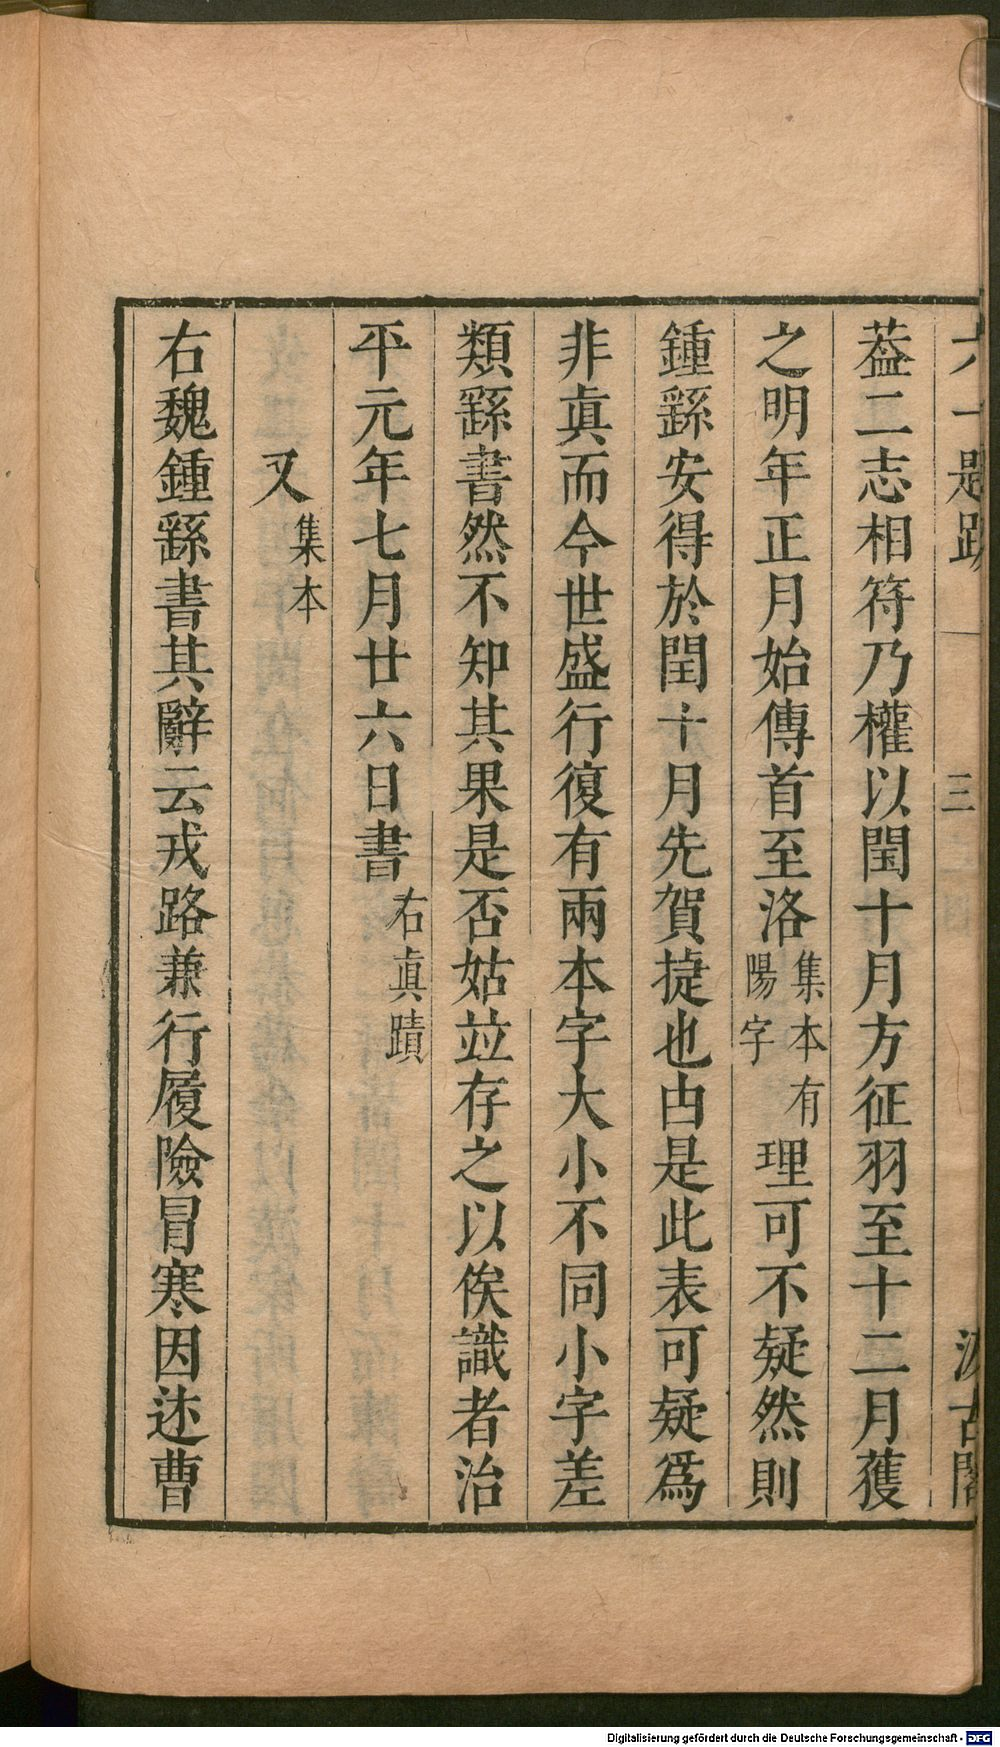 六一題跋 三 汲古閣
葢二志相符乃權以閏十月方征羽至十二月獲
之明年正月始傳首至洛集本有陽字理可不疑然則
鍾繇安得於閏十月先賀捷也由是此表可疑爲
非眞而今世盛行復有兩本字大小不同小字差
類繇書然不知其果是否姑竝存之以俟識者治
平元年七月廿六日書右眞蹟
又集本
右魏鍾繇書其辭云戎路兼行履險冒寒因述曹
Digitalisierung gefördert durch die Deutsche Forschungsgemeinschaft - DFG